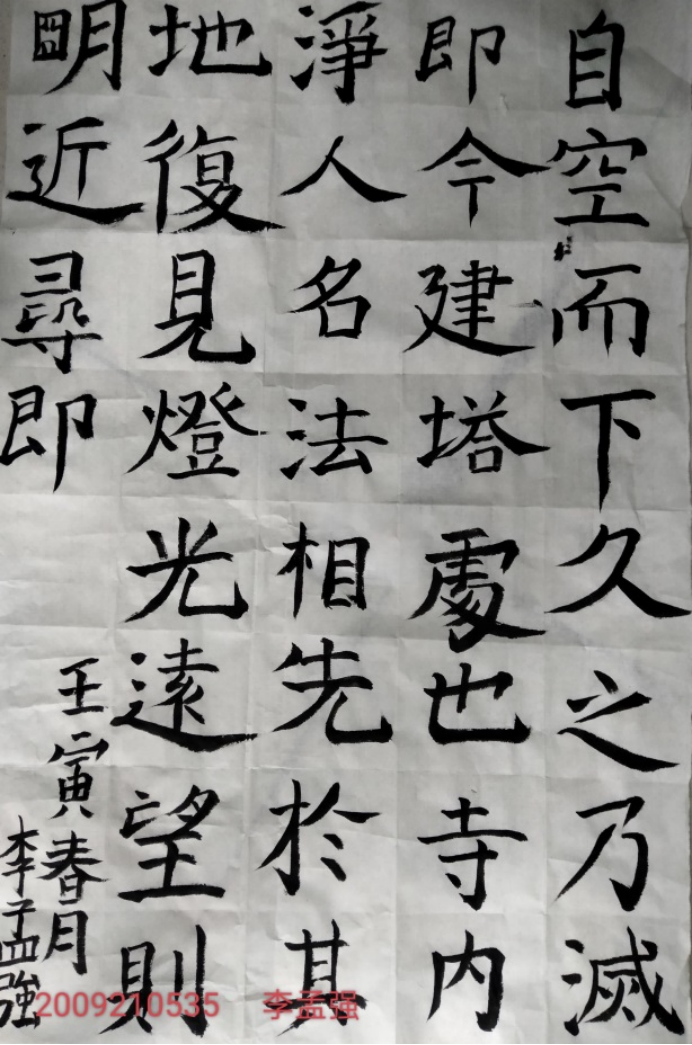 自空而下久之乃滅
即今建塔處也寺內
淨人名法相先於其
地復見燈光遠望則
明近尋即
壬寅春月
李孟強
2009210535 李孟强